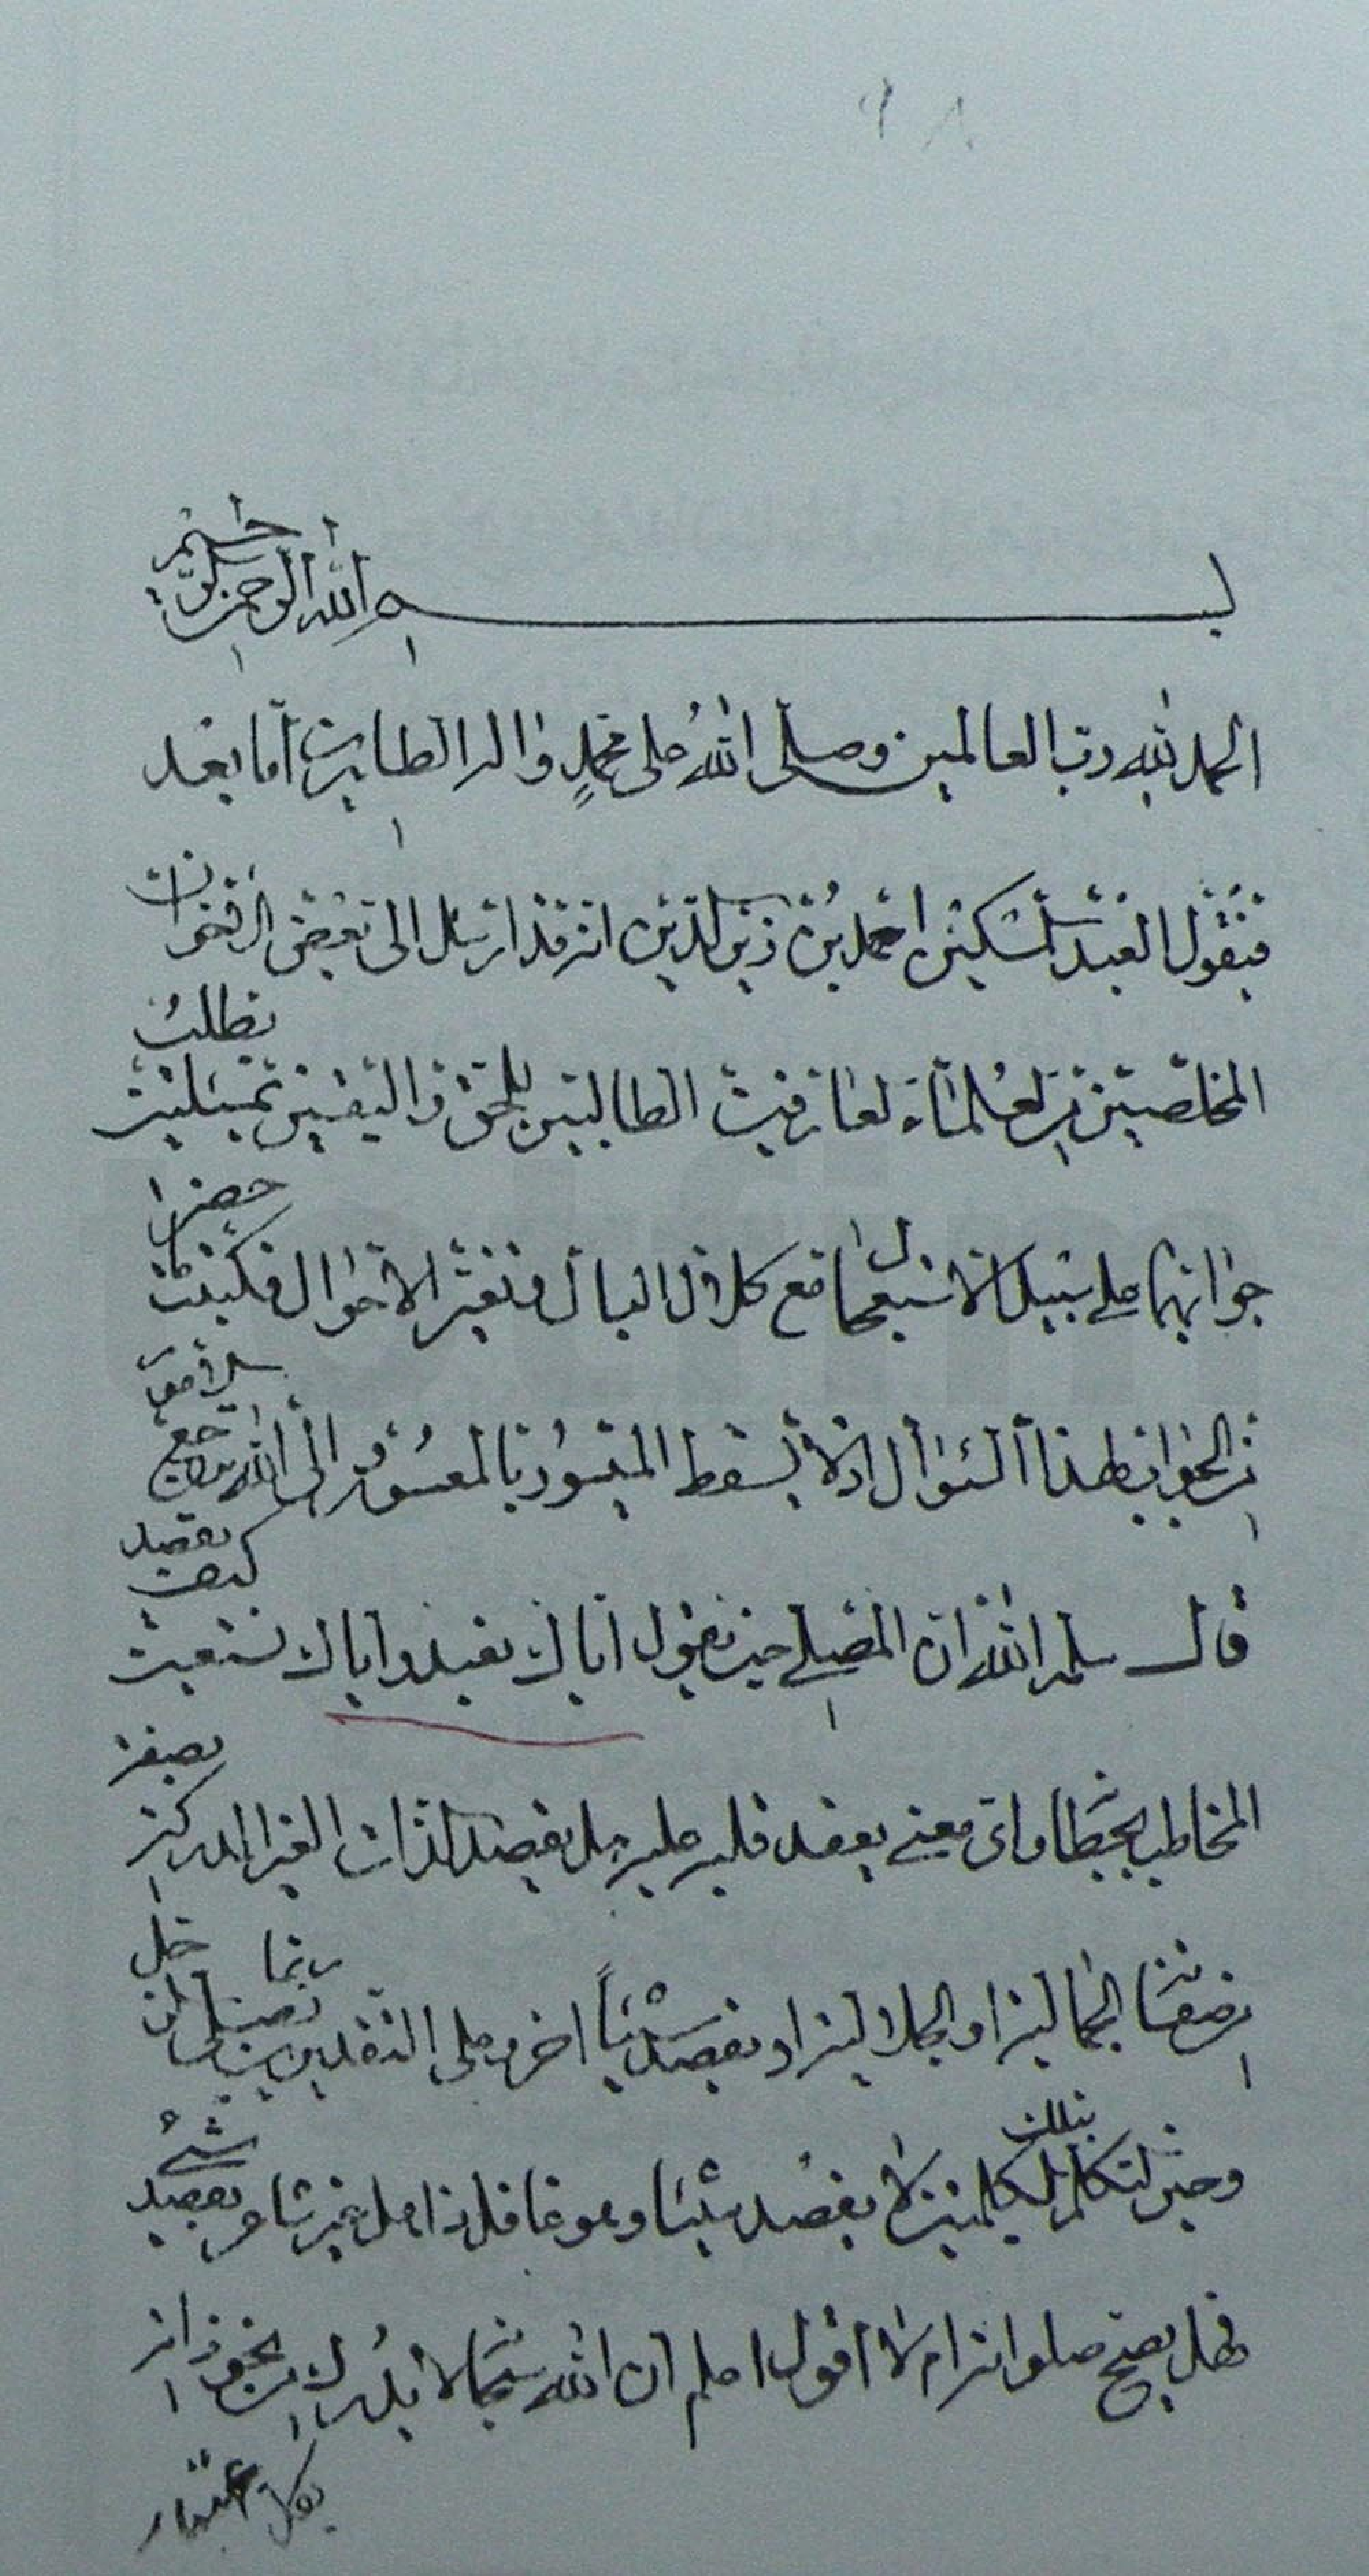 ٩٨
بسم الله الرحمن الرحيم
الحمد لله رب العالمين وصلى الله على محمد واله الطاهرين اما بعد
فيقول العبد المسكين احمد بن زين الدين انه قد ارسل الى بعض الاخوان
المخلصين من العلماء العارفين الطالبين للحق واليقين بمسئلتين يطلب
جوابهما على سبيل الاستعجال مع كلال البال وتغير الاحوال فكتبت ما حضرنى
من الجواب لهذا السؤال اذ لا يسقط الميسور بالمعسور والى الله ترجع الامور
قال سلمه الله ان المصلى حين يقول اياك نعبد واياك نستعين كيف يقصد
المخاطب بخطابه واى معنى يعقد قلبه عليه هل يقصد الذات الغير المدركة بصفة
من صفتنا الجمالية او الجلالية او يقصد شيئاً اخر وعلى التقديرين ربما يصلى
وحين التكلم بتلك الكلمتين لا يقصد شيئا وهو غافل ذاهل عن قصد شئ
فهل يصح صلواته ام لا اقول اعلم ان الله سبحانه لا يدرك من نحو ذاته
بكل اعتبار